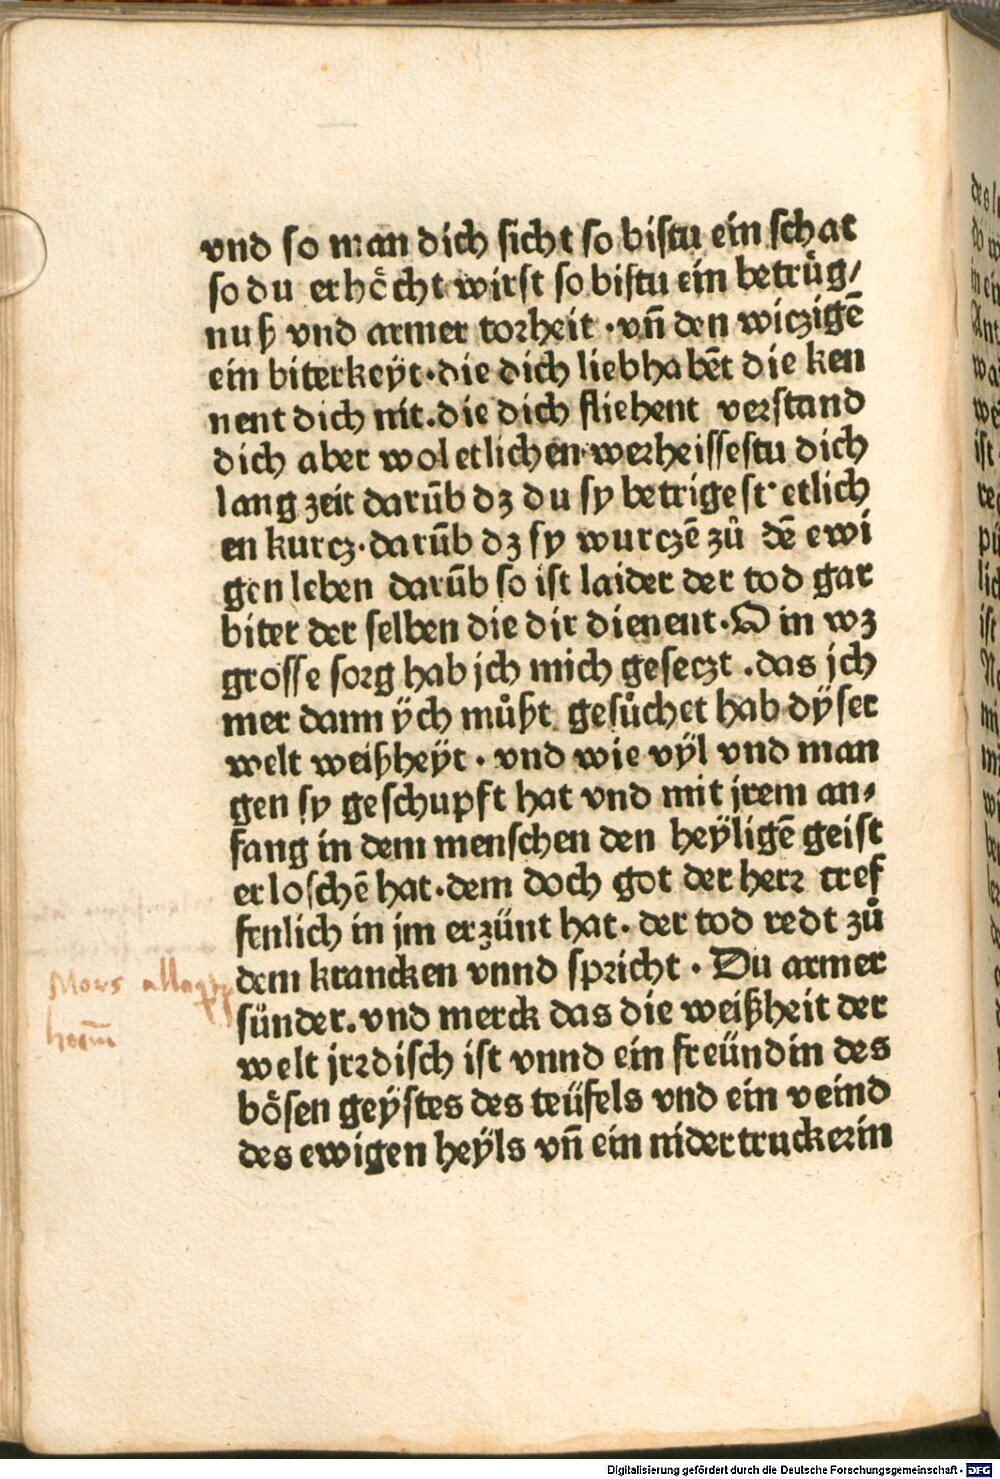 vnd so man dich sicht so bistu ein schat
so du erhoͤcht wirst so bistu ein betruͤg/
nuß vnd armer torheit ·vn̄ den wiczigē
ein biterkeÿt·die dich liebhabēt die ken
nent dich nit.die dich fliehent verstand
dich aber wol etlichen·werheissestu dich
lang zeit darūb dz du sy betrigest·etlich
en kurcz·darūb dz sy wurczē zů dē ewi
gen leben darūb so ist laider der tod gar
biter der selben die dir dienent·O in wz
grosse sorg hab jch mich geseczt .das jch
mer dann ÿch můßt gesůchet hab dÿser
welt weißheÿt · vnd wie vÿl vnd man
gen sy geschupft hat vnd mit jrem an/
fang in dem menschen den heÿligē geist
erloschē hat·dem doch got der herr tref
fenlich in jm erzünt hat· der tod redt zů
dem krancken vnnd spricht · Du armer
sünder.vnd merck das die weißheit der
welt jrrdisch ist vnnd ein freündin des
bösen geÿstes des teüfels vnd ein veind
des ewigen heÿls vn̄ ein nidertruckerin
Mors
Digitalisierung gefördert durch die Deutsche Forschungsgemeinschaft - DFG